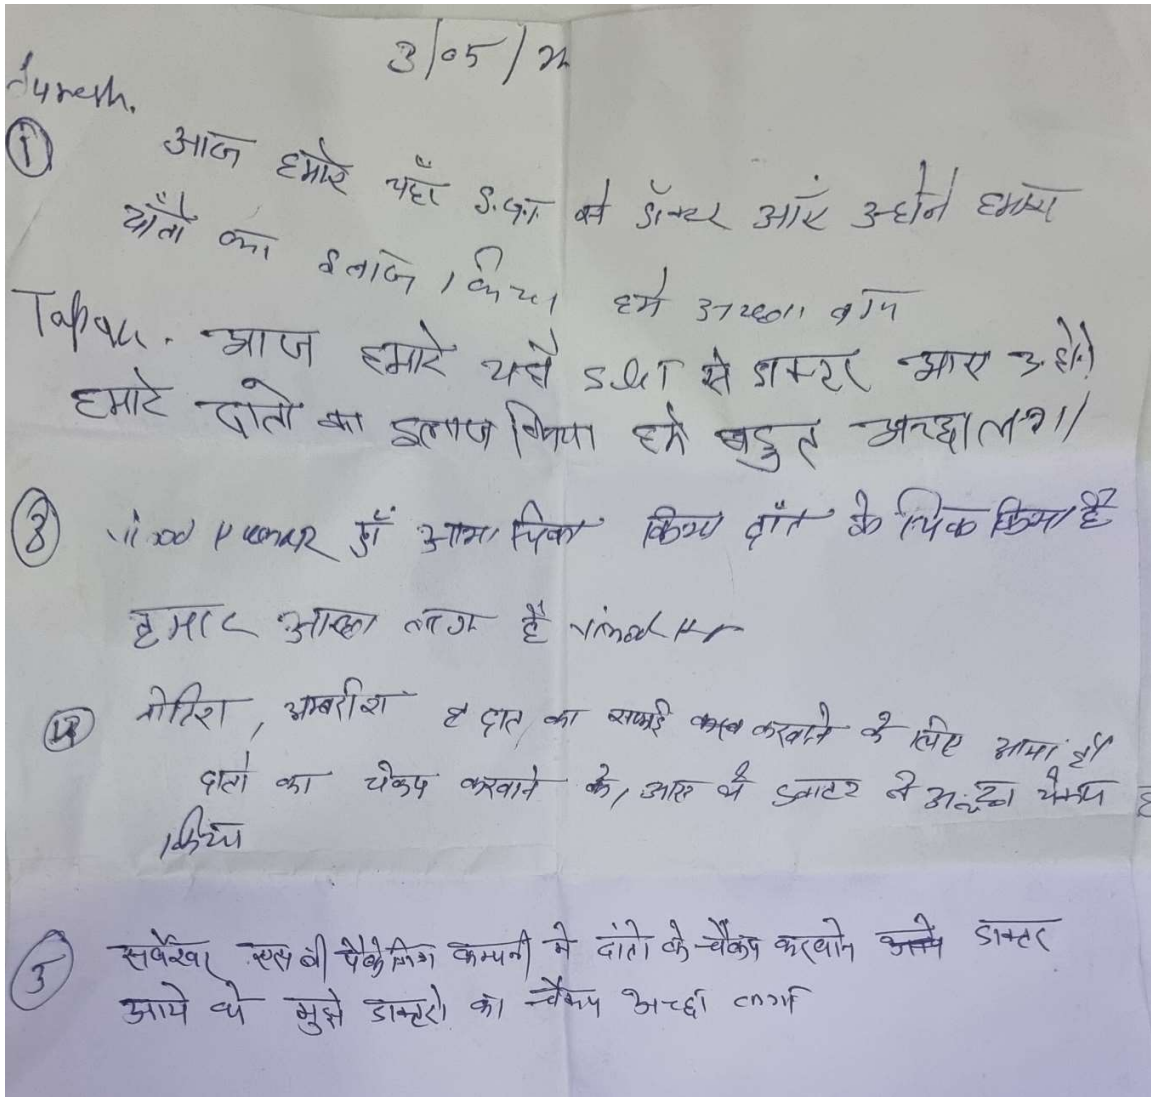 3/05/22
Suresh.
① आज हमारे यहाँ से डॉक्टर आएं उन्होंने हमारे
दाँतो का इलाज किया हमे अच्छा लगा
Tapan. आज हमारे यहाँ से डाक्टर आए उन्होंने
हमारे दांतो का इलाज किया हमे बहुत अच्छा लगा।
③ Vinod Kumar डॉ किया दाँत के किया है
हमार है vinod Kr
④ नीतिश, अम्बरीश दात का सफाई करवाने के लिए आया
दातो का चेकप करवाने के, आए थे डाक्टर ने अच्छा चेकप
किया
⑤ सर्वेश्वर एस बी पैकेजिंग कम्पनी मे दांतो के चैकप करवाने डाक्टर
आये थे मुझे डाक्टरो का चैकप अच्छा लगा